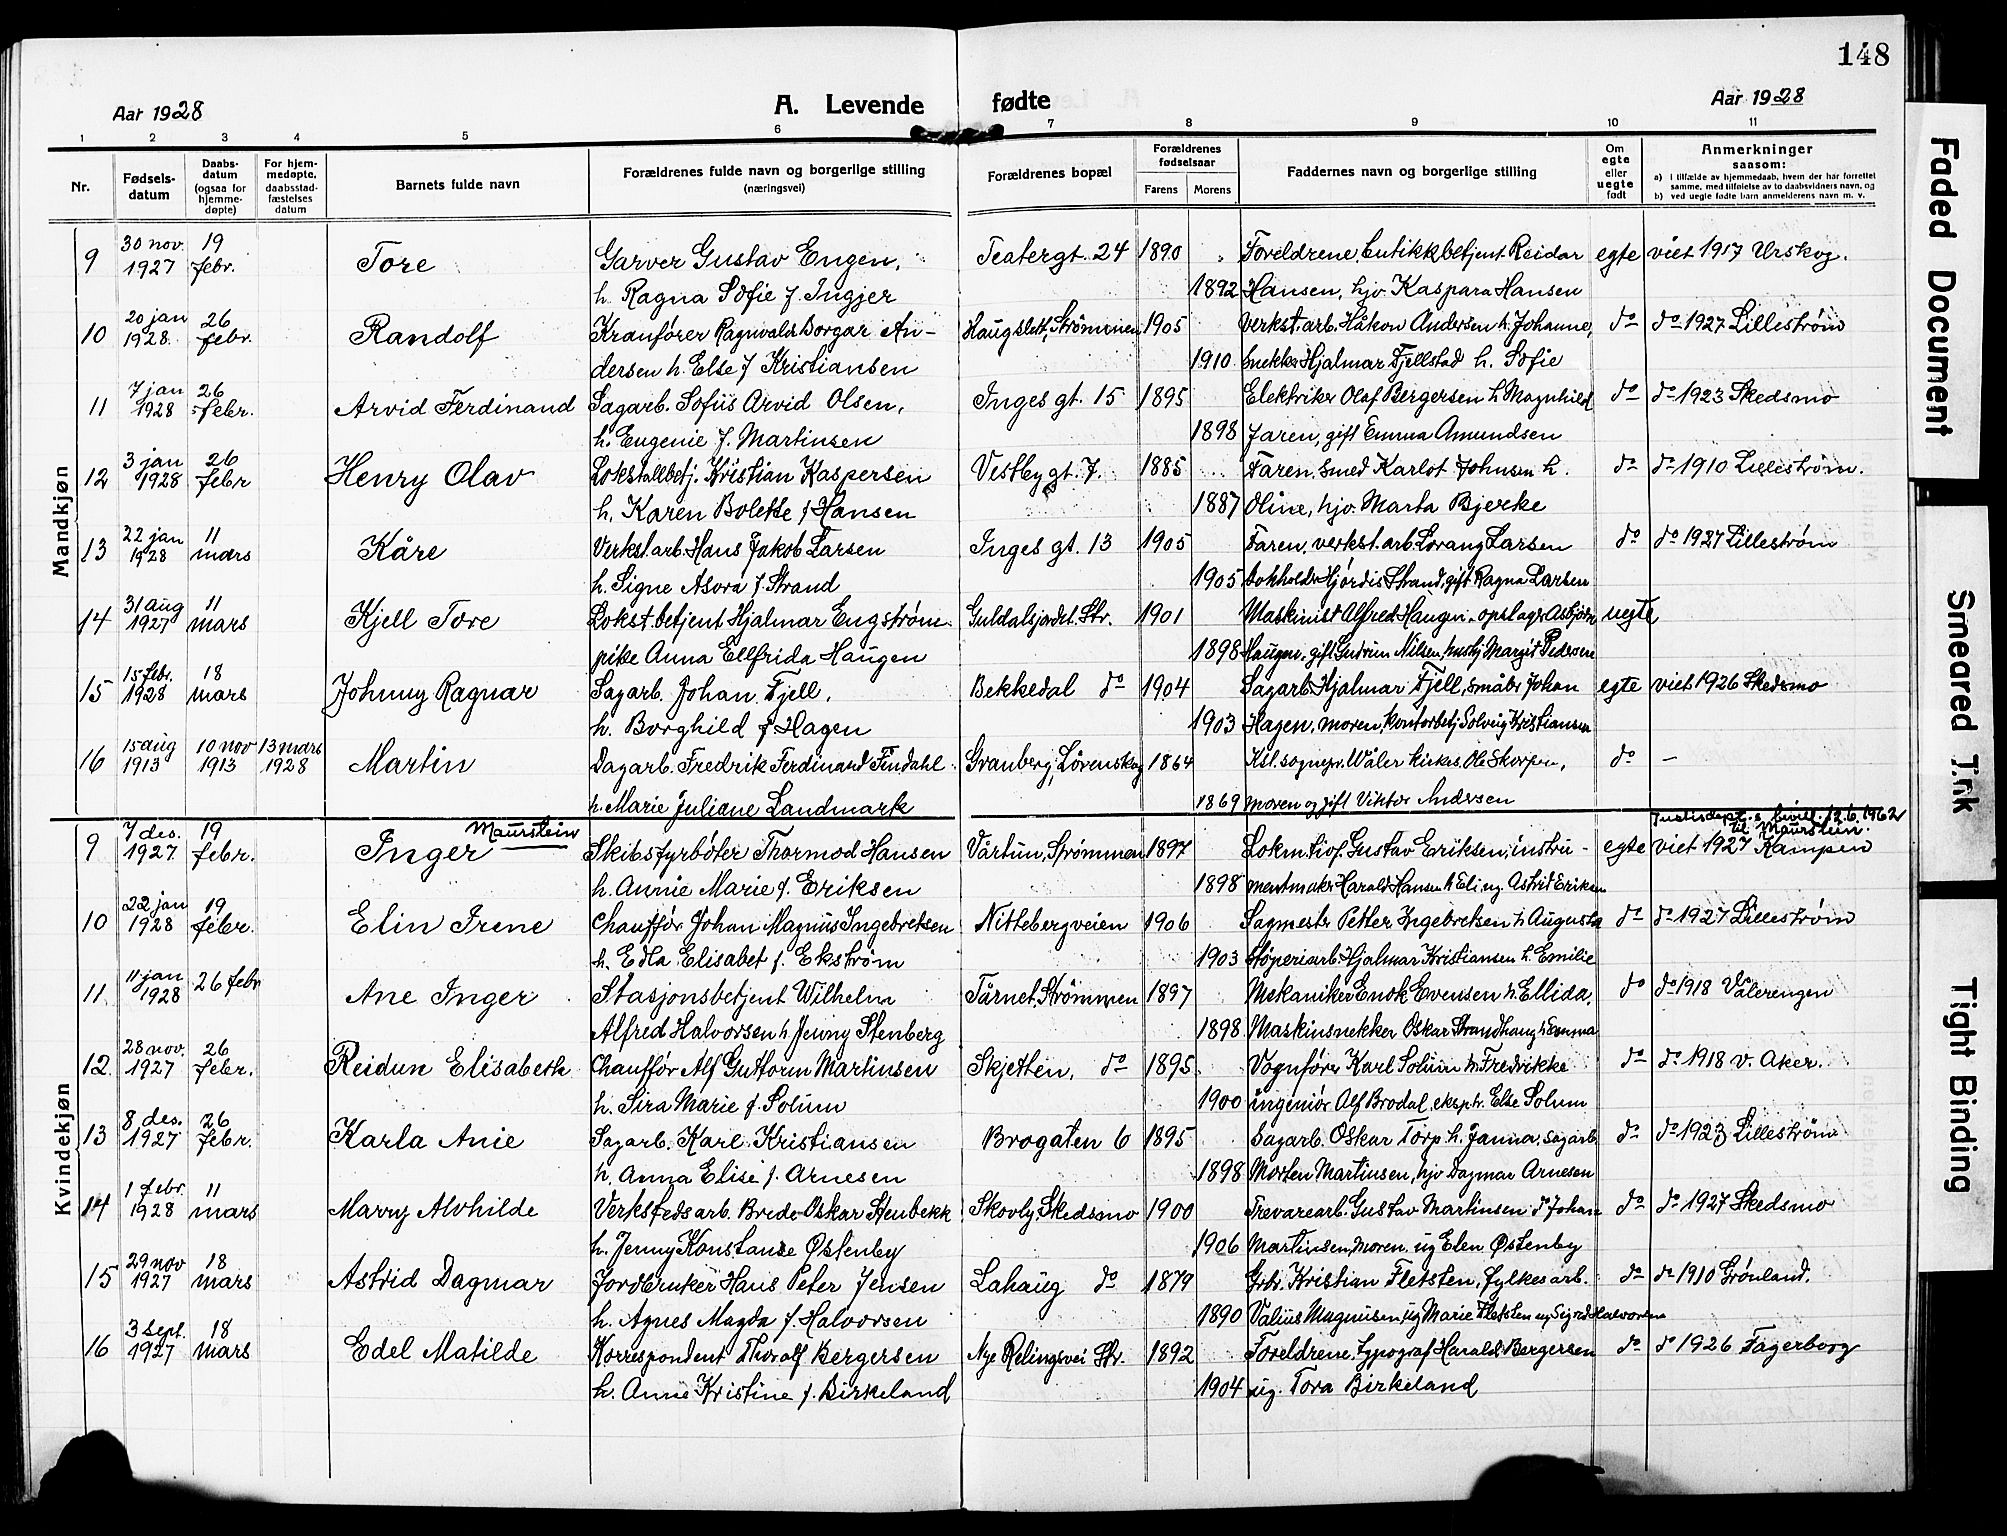 148
Aar 1928 A. Levende fødte Aar 1928
1 2 3 4 5 6 7 8 9 10 11
Nr. Fødsels-datum Daabs-datum (ogsaa for hjemme-døpte) For hjem-medøpte, daabsstad-fæstelses datum Barnets fulde navn Forældrenes fulde navn og borgerlige stilling (næringsvei) Forældrenes bopæl Forældrenes fødselsaar Farens Morens Faddernes navn og borgerlige stilling Om egte eller uegte født Anmerkninger saasom:
a) i tilfælde av hjemmedaab, hvem der har forrettet samme, med tilføielse av to daabsvidners navn, og
b) ved uegte fødte barn anmelderens navn m. v.
Mandkjøn
9 30 nov. 1927 19 febr. Tore Garver Gustav Engen, Teatergt. 24 1890 Foreldrene, butikkbetjent Reidar egte viet 1917 Urskog.
h. Ragna Sofie f. Ingjer 1892 Hansen, hjv. Kaspara Hansen
10 20 jan 1928. 26 febr. Randolf Kranfører Ragnvald Borgar An- Haugslett, Strømmen 1905 Verkst. arb. Håkon Andersen h. Johanne, do do 1927 Lillestrøm
dersen h. Else f Kristiansen 1910 snekker Hjalmar Fjellstad h. Sofie
11 7 jan 1928 26 febr. Arvid Ferdinand Sagarb. Sofus Arvid Olsen, Inges gt. 15 1895 Elektriker Olaf Bergersen h Magnhild do do 1923 Skedsmo
h. Eugenie f. Martinsen 1898 faren, gift Emma Amundsen
12 3 jan 1928 26 febr Henry Olav Lokstallbetj. Kristian Kaspersen Vestby gt. 7. 1885 Faren, smed Karlot Johnsen h. do do 1910 Lillestrøm.
h. Karen Bolette f Hansen 1887 Oline, hjv. Marta Bjerke
13 22 jan 1928 11 mars Kåre Verkst. arb. Hans Jakob Larsen Inges gt. 13 1905 Faren, verkst. arb. Lorang Larsen do do 1927 Lillestrøm
h. Signe Asora f Strand 1905 bokholder Hjørdis Strand, gift Ragna Larsen
14 31 aug 1927 11 mars Kjell Tore Lokst. betjent Hjalmar Engstrøm Guldalsjordet. Str. 1901 Maskinist Alfred Haugen, opslager Asbjørn uegte
pike Anna Ellfrida Haugen 1898 Haugen, gift Gudrun Nilsen, Margit Pedersen
15 15 febr. 1928 18 mars Johnny Ragnar Sagarb. Johan Fjell, Bekkedal do 1904 Sagarb. Hjalmar Fjell, småbr. Johan egte viet 1926 Skedsmo
h. Borghild f Hagen 1903 Hagen, moren, kontorbetj Solveig Kristiansen
16 15 aug 1913 10 nov 1913 13 mars 1928 Martin Dagarb. Fredrik Ferdinand Findahl Granberg, Lørenskog 1864 Ksl. sognepr. Wåler kirkes. Ole Skorpen, do —
h. Marie Juliane Landmark 1869 moren og gift Viktor Andersen
Kvindekjøn
Maurstein Justisdept.s bevill. 12.6.1962 til Maurstein.
9 7 des. 1927 19 febr. Inger Skibsfyrbøter Thormod Hansen Vårtun, Strømmen 1897 Lokm. Gustav Eriksen, instru- egte viet 1927 Kampen
h. Annie Marie f. Eriksen 1898 mentmaker Harald Hansen h Eli ug Astrid Eriksen
10 22 jan 1928 19 febr. Elin Irene Chauffør Johan Magnus Ingebretsen Nittebergveien 1906 Sagmestr Petter Ingebretsen h Augusta do do 1927 Lillestrøm
h. Edla Elisabet f. Ekstrøm 1903 støperiarb. Hjalmar Kristiansen h. Emilie
11. 11 jan 1928 26 febr Ane Inger Stasjonsbetjent Wilhelm Tårnet, Strømmen 1897 Mekaniker Enok Evensen h. Ellida, do do 1918 Vålerengen
Alfred Halvorsen h Jenny Stenberg 1898 Maskinsnekker Oskar Strandhaug h Emma
12. 28 nov. 1927 26 febr. Reidun Elisabeth Chauffør Alf Guttorm Martinsen Skjetten. do 1895 Vognfører Karl Solum h Fredrikke do do 1918 v. Aker.
h. Sira Marie f. Solum 1900 ingeniør Alf Brodal, eksptr. Else Solum
13 8 des. 1927 26 febr. Karla Anie Sagarb. Karl Kristiansen Brogaten 6 1895 Sagarb. Oskar Torp h. Janna, sagarb do do 1923 Lillestrøm
h. Anna Elise f. Arnesen 1898 Morten Martinsen, hjv Dagmar Arnesen
14 1 febr. 1928 11 mars Marry Alvhilde Verksfedsarb. Brede Oskar Stenbekk Skovly, Skedsmo 1900 Trevarearb. Gustav Martinsen do Johan do do 1927 Skedsmo
h. Jenny Konstanse Østenby 1906 Martinsen, moren, ug Elen Østenby
15 29 nov 1927 18 mars Astrid Dagmar Jordbruker Hans Peter Jensen Lahaug do 1879 Grbr. Kristian Fletsten, fylkesarb. do do 1910 Grønland.
h. Agnes Magda f. Halvorsen 1890 Valius Magnusen, ug Marie Fletsten ug Sigrid Halvorsen
16 3 sept. 1927 18 mars Edel Matilde Korrespondent Thoralf Bergersen Nye Relingsvei Str. 1892 Foreldrene, typograf Harald Bergersen do do 1926 Fagerborg
h. Anne Kristine f. Birkeland 1904 ug. Tora Birkeland
Faded Document
Smeared Ink
Tight Binding